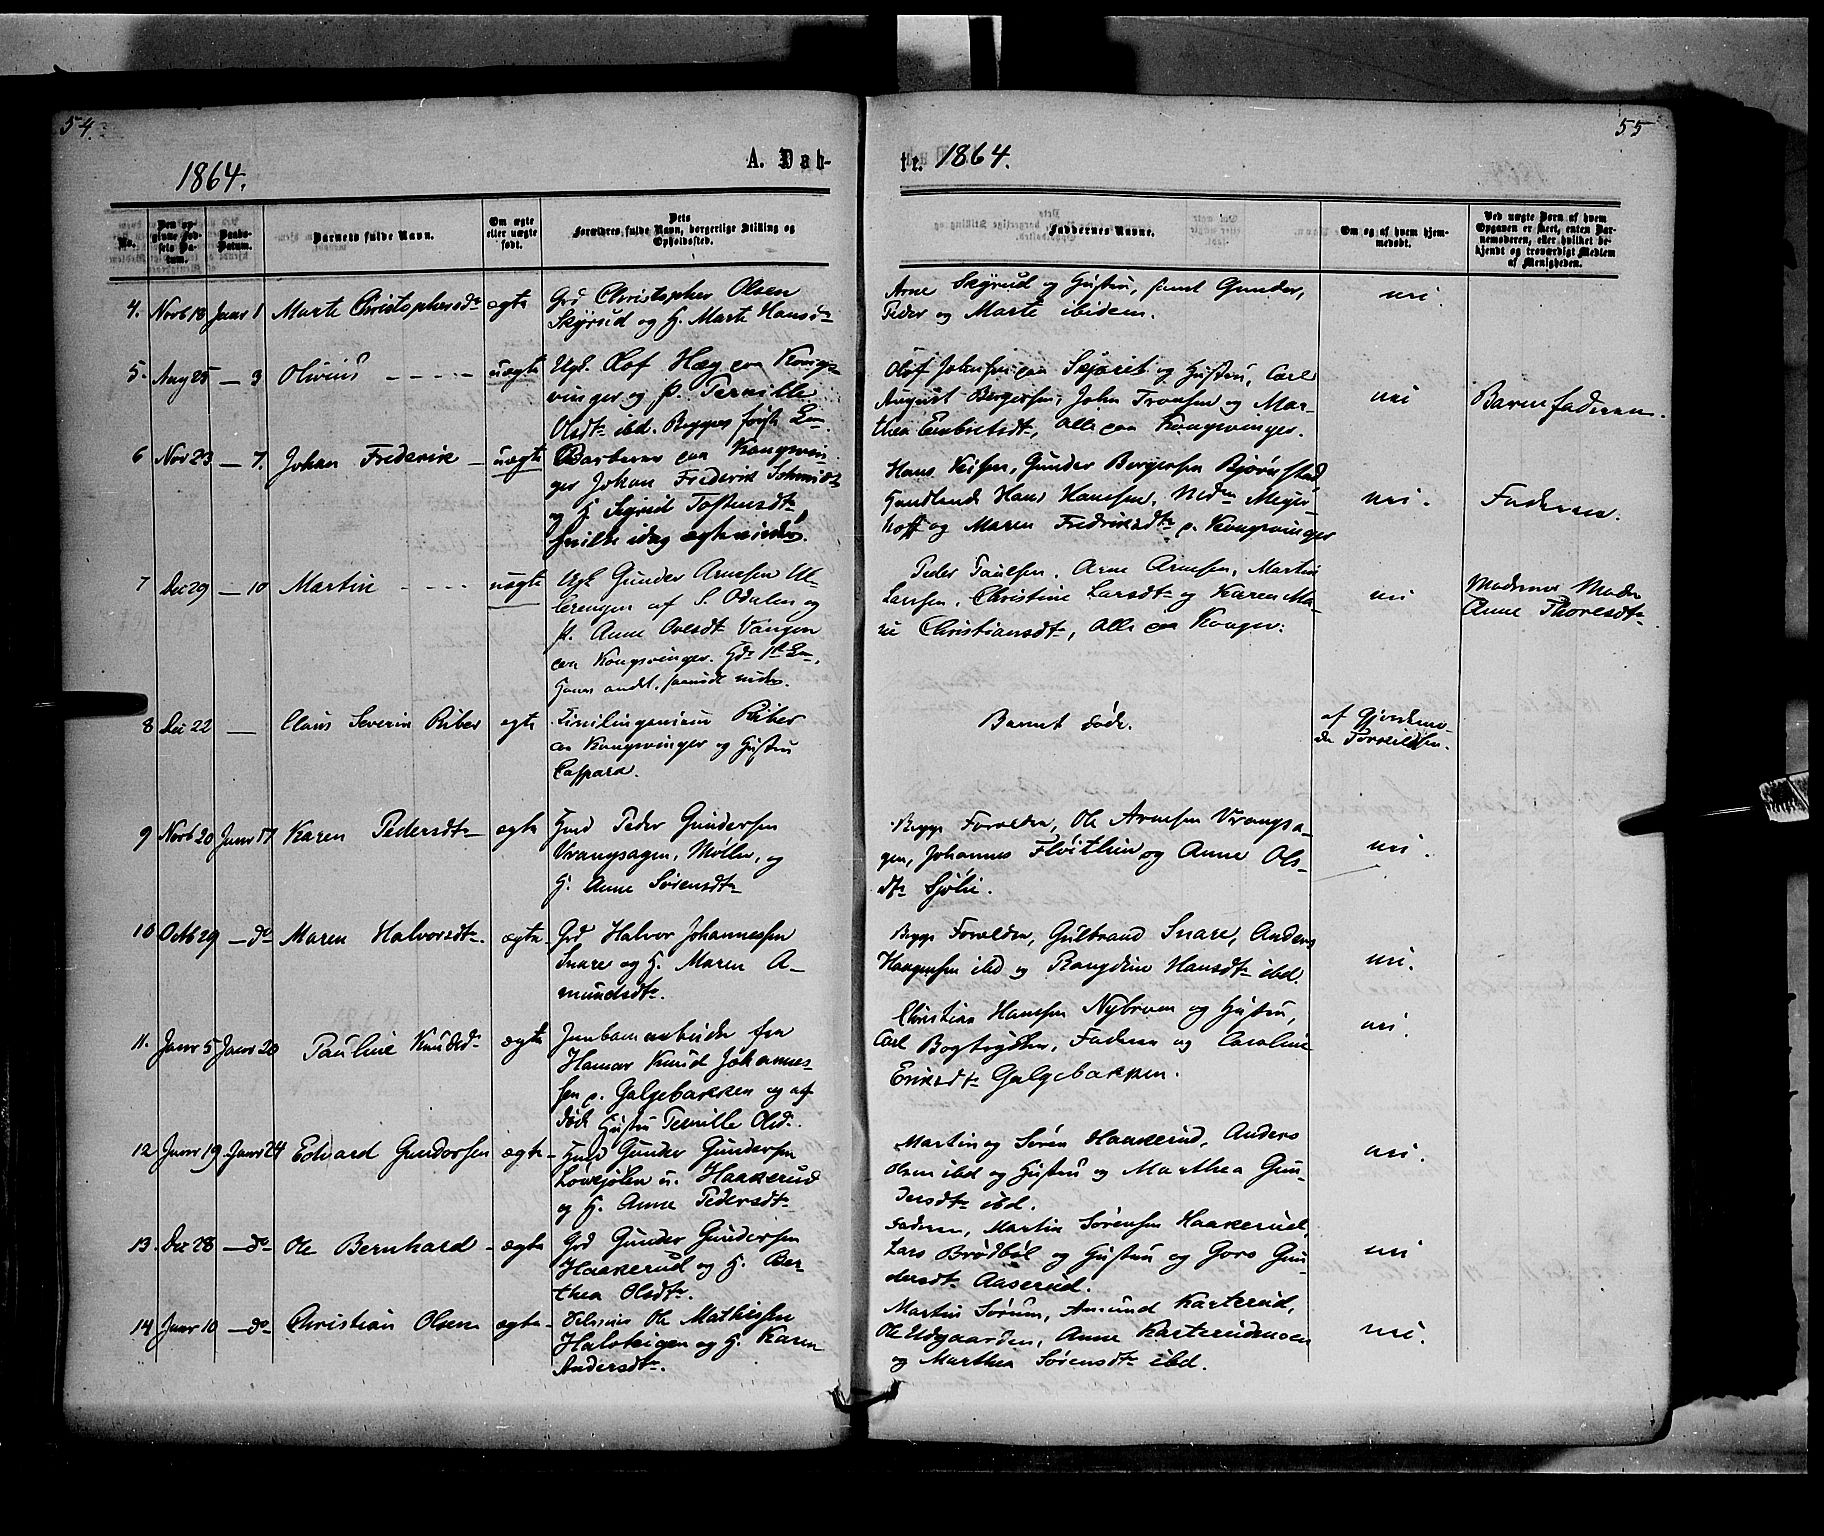 54.
55
1864.
A. Dab-
tr.
1864.
No.
Den opgivne Fødsels Datum.
Daabs-Datum.
Barnets fulde Navn.
Om ægte eller uægte født.
Dets Forældres fulde Navn, borgerlige Stilling og Opholdssted.
Faddernes Navne.
Om og af hvem hjemmedøbt.
Ved uægte Børn af hvem Opgaven er skeet, enten Barnemoderen, eller hvilket bekjendt og troværdigt Medlem af Menigheden.
4. Novb 18 Janr 1 Marte Christophersdtr ægte Grd Christopher Olsen
Skyrud og H. Marte Hansdtr
Arne Skyrud og Hustru, samt Gunder,
Peder og Marte ibidem.
nei.
5. Aug 25 — 3 Olivius uægte Ugk. Olof Hæg paa Kongs-
vinger og P. Pernille
Olsdtr ibd. Begges første L—.
Olof Johnsen paa Skjæret og Hustru, Carl
August Bergersen, John Tronsen og Mar-
thea Embretsdtr, Alle paa Kongsvinger.
nei
Barnefaderen.
6 Nov 23 — 7. Johan Frederik uægte Barberer paa Kongsvin-
ger Johan Frederik Schmidt
og H Sigrid Tostensdtr
hvilke idag ægteviedes.
Hans Gunder Bergersen Bjørnstad
Handlende Hans Hansen, Meyer-
hoff og Maren Fredriksdtr p. Kongsvinger
nei.
Faderen.
7 Dec 29 — 10 Martin uægte Ugk Gunder Arnesen Ul-
lerengen af S. Odalen og
P. Anne Ovesdtr Vangen
paa Kongsvinger. Hds 1ste L—,
Hans andet,
Peder Paulsen, Arne Arnesen, Martin
Larsen, Christine Larsdtr og Karen Ma-
rie Christiansdtr, Alle paa Kongsv.
nei
Moderens Moder
Anne Thoresdtr
8 Dec 22 — Claus Severin Riber ægte Civilingenieur Riber
paa Kongsvinger og Hustru
Caspara.
Barnet døde.
af Gjordemo-
der Torkildsen.
9 Novb 20 Janr 17 Karen Pedersdtr ægte Hmd Peder Gundersen
Vrangsagen, Møller, og
H. Anne Sørensdtr
Begge Forældre, Ole Arnesen Vrangsa-
gen, Johannes Fløitlien og Anne Ols-
dtr Sjølie.
nei.
10 Octb 29 — do Maren Halvorsdtr. ægte Grd Halvor Johannessen
Snare og H. Maren A-
mundsdtr.
Begge Forældre, Gulbrand Snare, Anders
Haagensen ibd og Rangdine Hansdtr ibd.
nei.
11. Janr 5 Janr 20 Pauline Knudsdtr ægte Jernbanearbeider fra
Hamar Knud Johannes-
sen p. Galgebakken og af-
døde Hustru Pernille Olsdtr.
Christian Hansen Nybroen og Hustru,
Carl Bogtrykker, Faderen og Caroline
Eriksdtr Galgebakken.
nei.
12 Janr 19 Janr 24 Edvard Gundersen ægte Hmd Gunder Gundersen
Løvsjølien u. Haakerud
og H. Anne Pedersdtr
Martin og Søren Haakerud, Anders
Olsen ibd og Hustru og Marthea Gun-
dersdtr ibd.
nei.
13. Dec 28 — do Ole Bernhard ægte Grd Gunder Gundersen
Haakerud og H. Ber-
thea Olsdtr.
Faderen, Martin Sørensen Haakerud,
Lars Brødbøl og Hustru og Goro Gun-
dersdtr Aaserud.
nei
14 Janr 10 — do Christian Olsen ægte Ole Mathisen
Halsteigen og H. Karen
Andersdtr.
Martin Sørum, Amund Karterud,
Ole Udgaarden, Anne Karterudmoen
og Marthea Sørensdtr ibd.
nei.